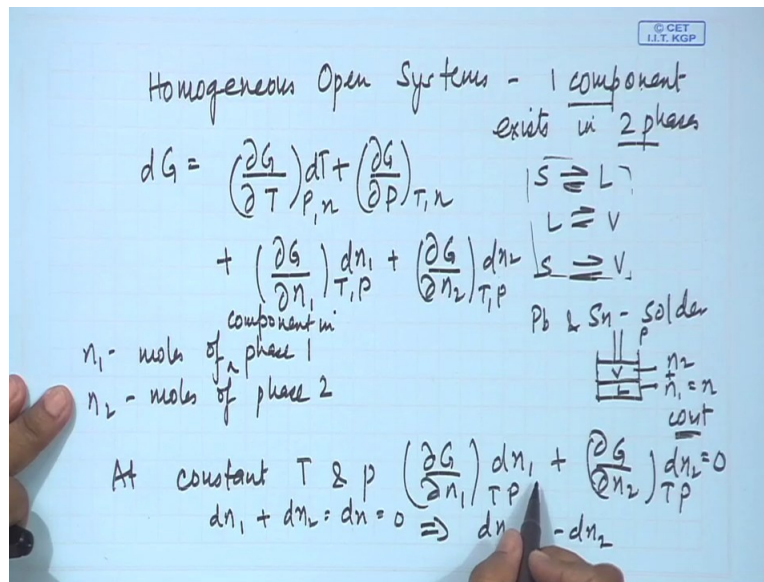 © CET
I.I.T. KGP
Homogeneous Open Systems - 1 component
exists in 2 phases
dG = (∂G/∂T)P,n dT + (∂G/∂P)T,n
+ (∂G/∂n1)T,P dn1 + (∂G/∂n2)T,P dn2
S ⇌ L
L ⇌ V
S ⇌ V
Pb & Sn - Solder
component in
n1 - moles of ‸ phase 1
n2 - moles of phase 2
P
V n2
+
L n1 = n
const
At constant T & P (∂G/∂n1)TP dn1 + (∂G/∂n2)TP dn2 = 0
dn1 + dn2 = dn = 0 ⇒ dn - dn2